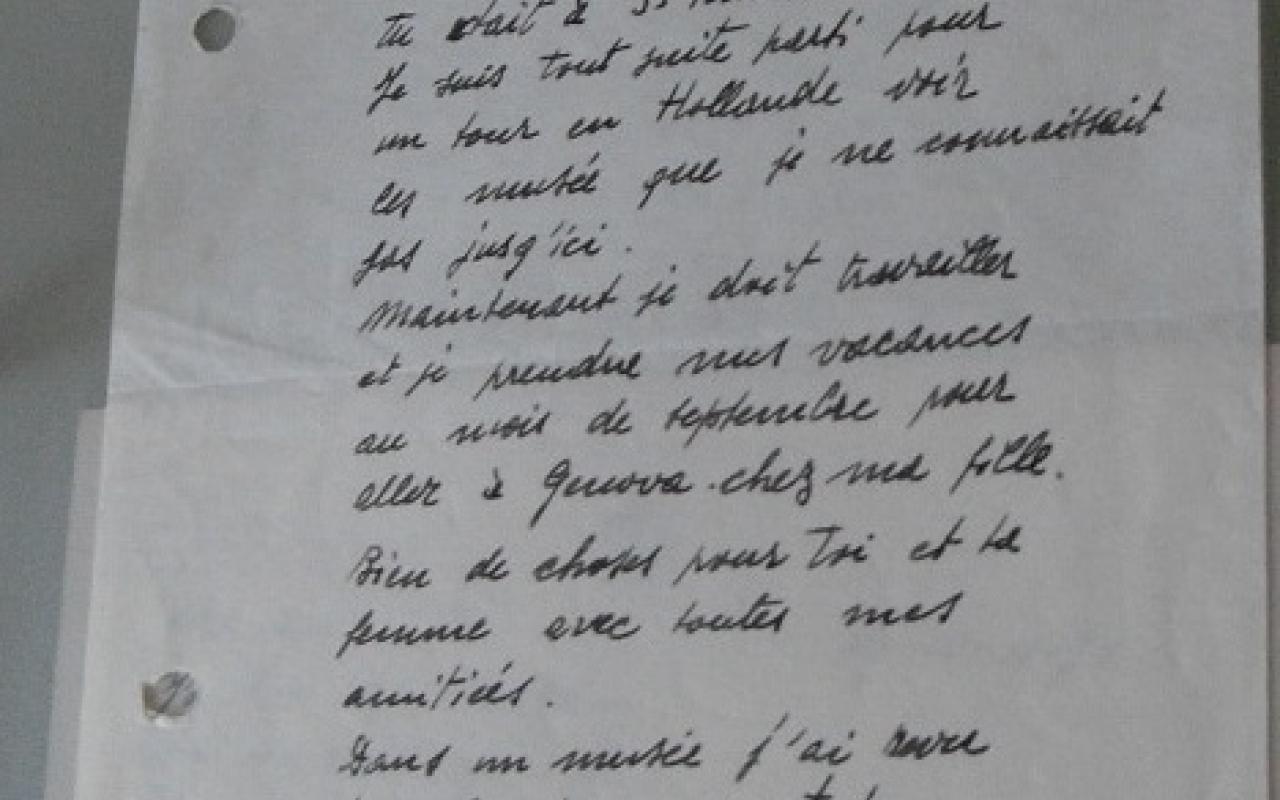 tu etait à
Je suis tout suite parti pour
un tour en Hollande voir
les musée que je ne connaissait
pas jusq'ici.
Maintenant je doit travailler
et je prendre mes vacances
au mois de septembre pour
aller à Genova chez ma fille.
Bien de choses pour toi et ta
femme avec toutes mes
amitiés.
Dans un musée j'ai revu